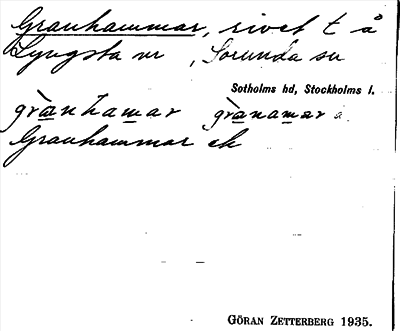 Granhammar, rivet t å
Lyngsta nr , Sorunda sn
Sotholms hd, Stockholms l.
grànhamar grànamar a.
Granhammar ek
GÖRAN ZETTERBERG 1935.